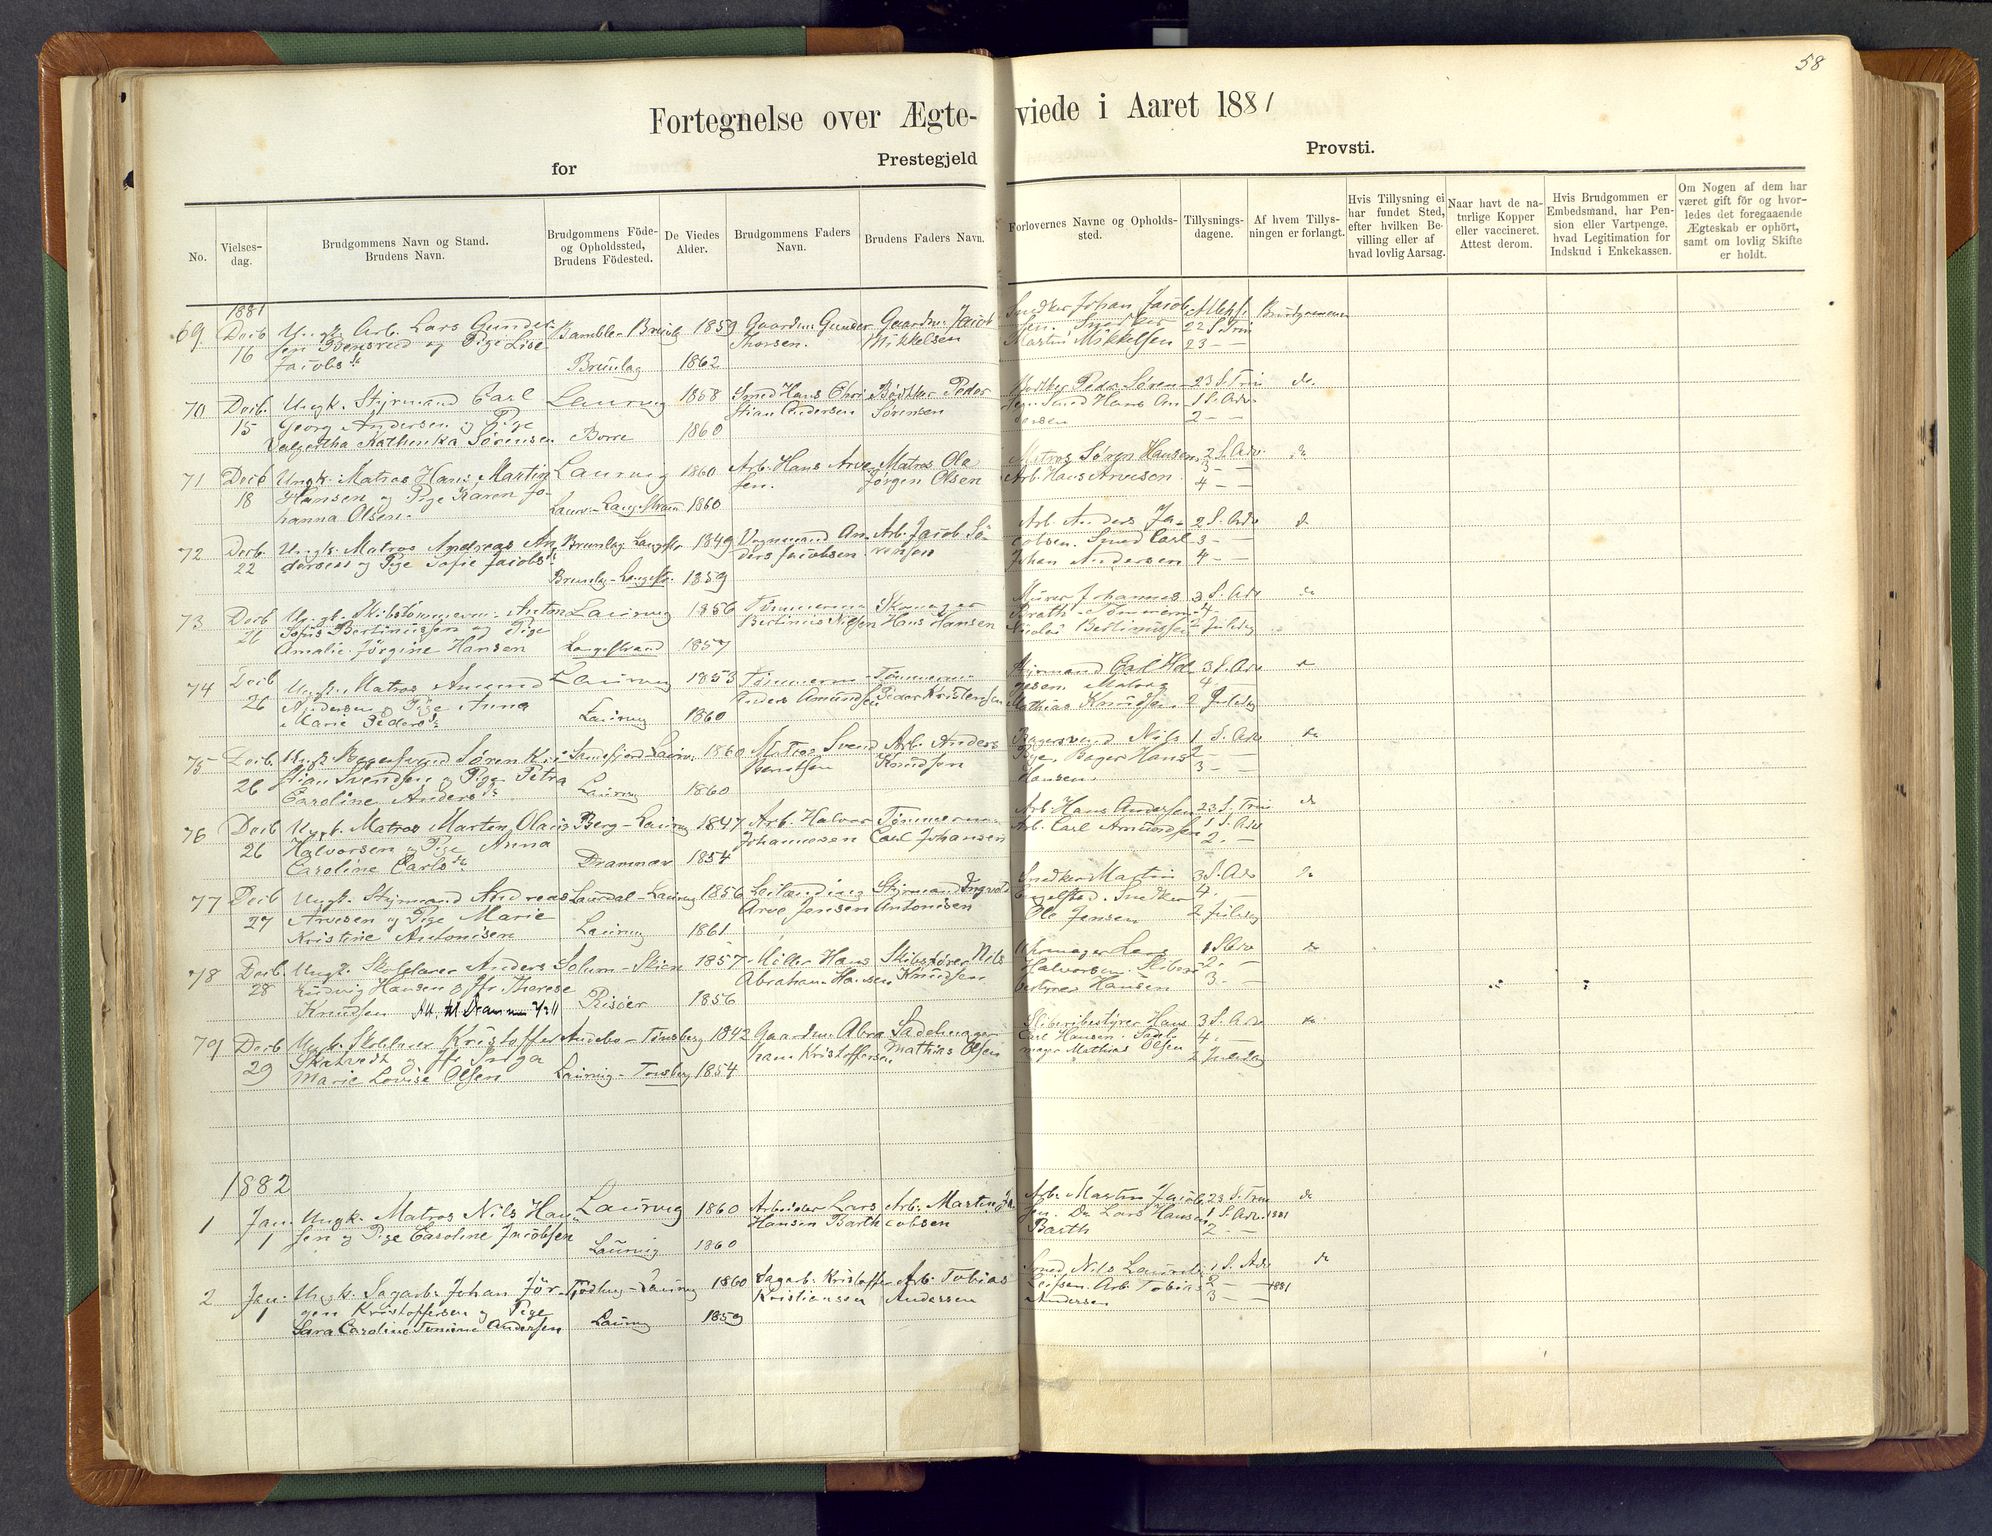 58
Fortegnelse over Ægteviede i Aaret 1881
for Prestegjeld Provsti.
No.
Vielsesdag.
Brudgommens Navn og Stand.
Brudens Navn.
Brudgommens Föde-
og Opholdssted,
Brudens Födested.
De Viedes
Alder.
Brudgommens Faders
Navn.
Brudens Faders Navn.
Forlovernes Navne og Opholds-
sted.
Tillysnings-
dagene.
Af hvem Tillys-
ningen er forlangt.
Hvis Tillysning ei
har fundet Sted,
efter hvilken Be-
villing eller af
hvad lovlig Aarsag.
Naar havt de na-
turlige Kopper
eller vaccineret.
Attest derom.
Hvis Brudgommen er
Embedsmand, har Pen-
sion eller Vartpenge,
hvad Legitimation for
Indskud i Enkekassen.
Om Nogen af dem har
været gift för og hvor-
ledes det foregaaende
Ægteskab er ophört,
samt om lovlig Skifte
er holdt.
1881
69 Decb 16
Ungk. Arb. Lars Gunder-
sen og Pige Lise
Jacobs dr
Bamble - Brunla
Brunlag
1859
1862
Gaardm. Gunder
Thorsen.
Gaardm. Jacob
Mikkelsen
Snedker Johan Jacob
sen. Snedker
Martin Mikkelsen
22 S. Trin
23 - -
Brudgommen
70 Decb. 15
Ungk. Styrmand Carl
Georg Andersen og Pige
Valgertha Kathenka Sørensen
Laurvig
Borre
1858
1860
Smed Hans Chri
stian Andersen
Bødker Peder
Sørensen
Bødker Peder Søren
sen. Smed Hans An
dersen
23 S. Trin
1 S. Adv
2 -
do
71 Decb 18
Ungk. Matros Hans Martin
Hansen og Pige Karen Jo
hanna Olsen.
Laurvig
Laurv - Langestrand
1860
1860
Arb. Hans Arve
sen.
Matros Ole
Jørgen Olsen
Matros Søren Hansen.
Arb. Hans Arvesen
2 S. Adv
3 - -
4 - -
do
72 Decb. 22
Ungk. Matros Andreas An
dersen og Pige Sofie Jacobs dr
Brunlag Langestr
Brunlag - Langestr.
1849
1859
Vognmand An
ders Jacobsen
Arb. Jacob Sö
rensen
Arb. Anders Ja-
cobsen. Smed Carl
Johan Andersen
2 S. Adv
3 - -
4 - -
do
73 Decb 26
Ungk. Skibstømmerm. Anton
Sofus Bertinussen og Pige
Amalie Jörgine Hansen
Laurvig
Langestrand
1856
1857
Tömmerm
Bertinus Nilsen
Skomager
Hans Hansen
Murer Johannes
Brath - Tömmerm.
Nicolai Bertinussen
3 S. Adv
4
2 Juledag
do
74 Decb 26
Ungk. Matros Amund
Andersen og Pige Anna
Marie Peders dr
Laurvig
Laurvig
1853
1860
Tömmerm
Anders Amundsen
Tömmerm
Peder Kristensen
Styrmand Carl Hel
gesen. Matros
Mathias Knudsen
3 S. Adv
4
2 Juledag
75 Decb. 26
Ungk. Bagersvend Sören Kri
stian Svendsen og Pige Petra
Caroline Anders dr
Sandefjord Laurv.
Laurvig
1860
1860
Matros Svend
Berntsen
Arb. Anders
Knudsen
Bagersvend Nils
Bager Hans
Hansen
1 S. Adv
2 -
3 - -
do
76 Decb 26
Ungk. Matros Marten Olaus
Halvorsen og Pige Anna
Caroline Carls dr
Berg - Laurvig
Drammen
1847
1854
Arb. Halvor
Johannesen
Tömmerm
Carl Johansen
Arb. Hans Andersen
Arb. Carl Amundsen
23 S. Trin
1 S. Adv
2. -
do
77 Decb 27
Ungk. Styrmand Andreas
Arvesen og Pige Marie
Kristine Antonisen
Laurdal - Laurvig
Laurvig
1856
1861
Leilænding
Arve Jensen
Styrmand Ingvald
Antonisen
Snedker Martin
Engelsted. Snedker
Ole Jensen
3 S. Adv
4. -
2 Juledag
do
78 Decb. 28
Ungk. Skolelærer Anders
Ludvig Hansen og Jfr Therese
Knudsen
Solum - Skien
Risöer
1857
1856
Möller Hans
Abraham Hansen
Skibsförer Nils
Knudsen
Uhrmager Lars
Halvorsen. Sliberi
bestyrer Hansen
1 S. Adv
2. -
3. -
do
79 Decb 29
Ungk. Skolelærer Kristoffer
Skatvedt og Jfr Inga
Marie Lovise Olsen
Andebo - Tönsberg
Laurvig - Tonsberg
1842
1854
Gaardm. Abra
ham Kristoffersen
Sadelmager
Mathias Olsen
Sliberibestyrer Hans
Carl Hansen. Sadel
mager Mathias Olsen
3 S. Adv
4. -
2 Juledag
do
1882
1 Jan 1
Ungk. Matros Nils Han
sen og Pige Caroline Jacobsen
Laurvig
Laurvig
1860
1860
Arbeider Lars
Hansen Barth
Arb. Martin Ja
cobsen
Arb. Martin Jacob
sen. Do Lars Hansen
Barth
23 S. Trin
1 S. Adv. 1881
2 - -
do
2 Jan: 1
Ungk. Sagarb. Johan Jör
gen Kristoffersen og Pige
Sara Caroline Tomine Andersen
Tjödling - Laurvig
Laurvig
1860
1859
Sagarb. Kristoffer
Kristiansen
Arb. Tobias
Andersen
Smed Nils Laurits
Leifsen Arb Tobias
Andersen
1 S. Adv
2 -
3 - - 1881
do